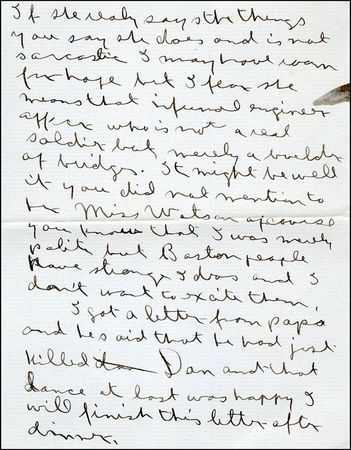 If she realy say s the things
you say she does and is not
sarcastic I may have room
for hope but I fear she
means that infurnal engineer
officer who is not a real
soldier but merely a builder
of bridges. It might be well
if you did not mention to
her Miss Watson of course
you know that I was merely
polite but Boston people
have strange Idoas and I
don't want to excite them.
I got a letter from papa
and he said that he had just
killed Dan and that
Lance at last was happy I
will finish this letter after
dinner.